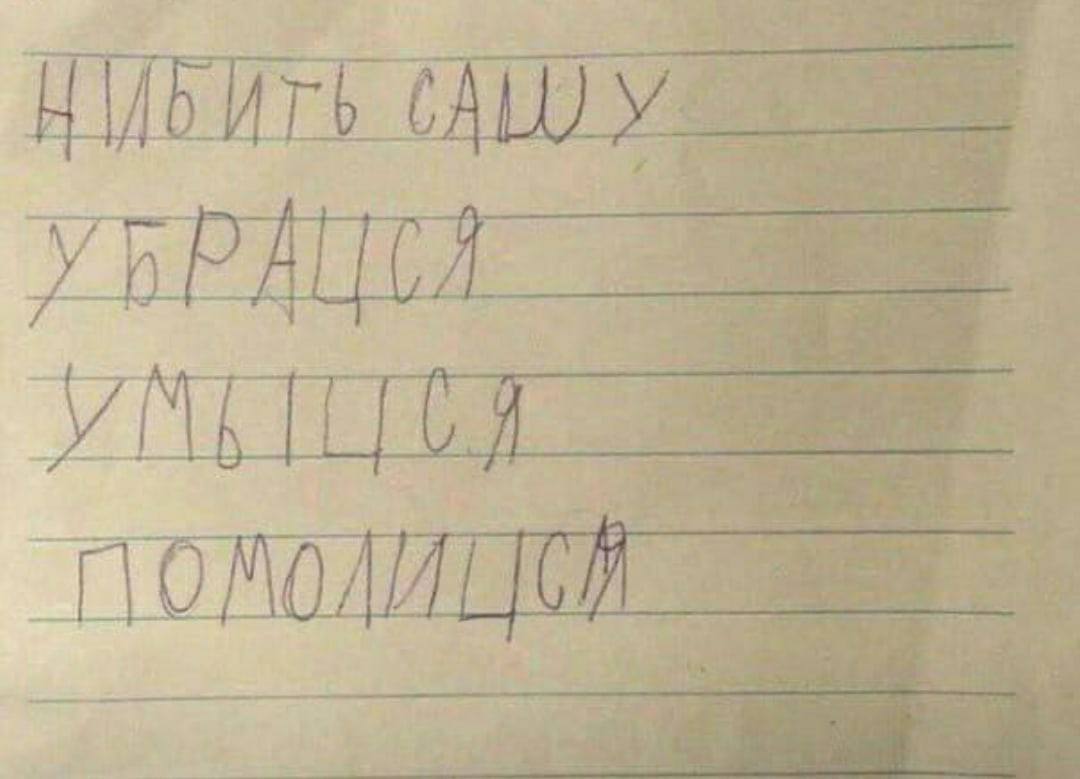 НИБИТЬ САШУ
УБРАЦСЯ
УМЫЦСЯ
ПОМОЛИЦСЯ